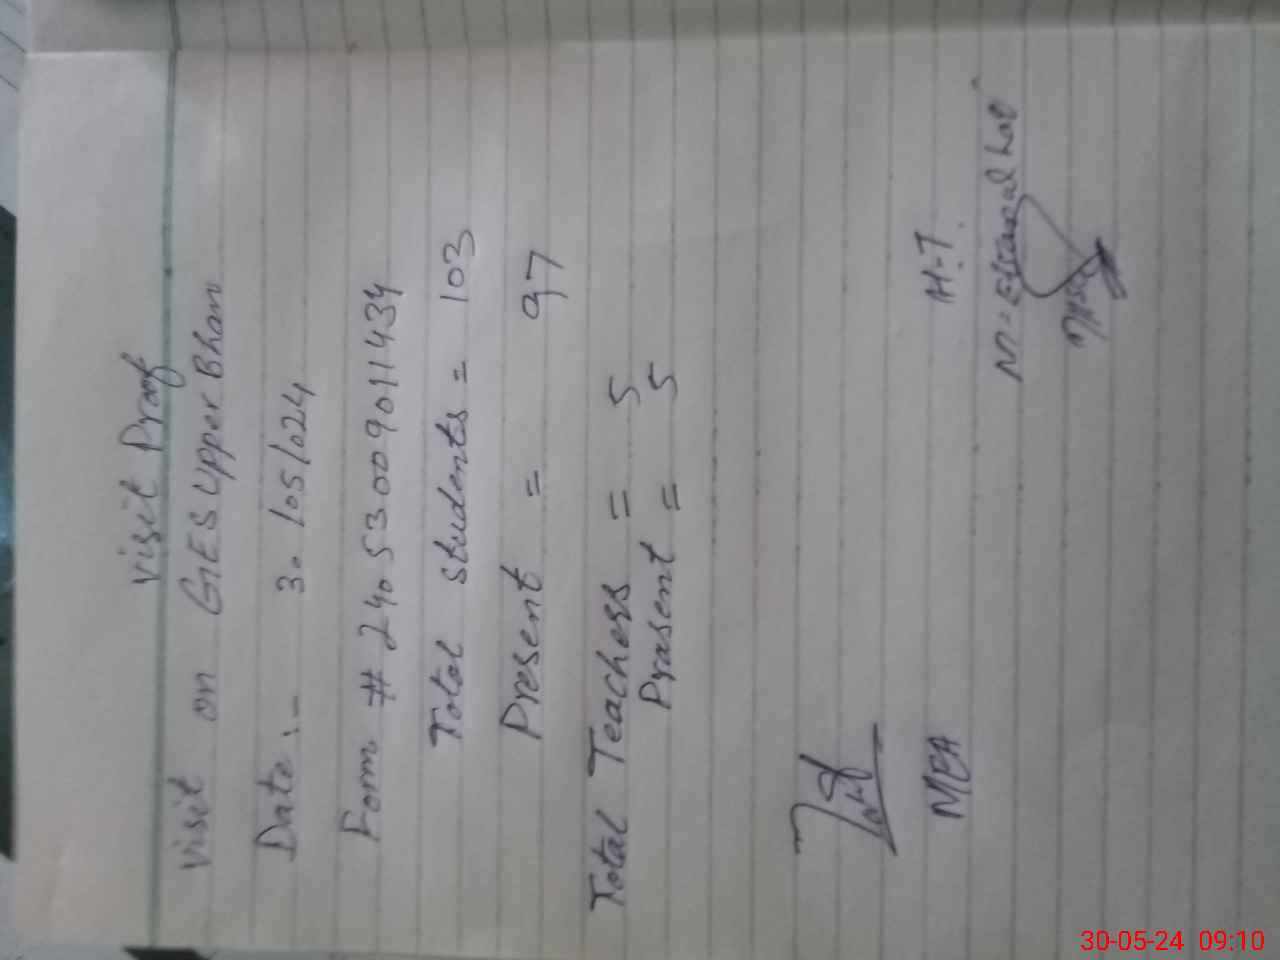 Visit Proof
Visit on GES Upper Bhan
Date:- 30/05/024
Form # 24053009011434
Total Students = 103
Present = 97
Total Teachers = 5
Prasent = 5
MEA
H-T.
30-05-24 09:10